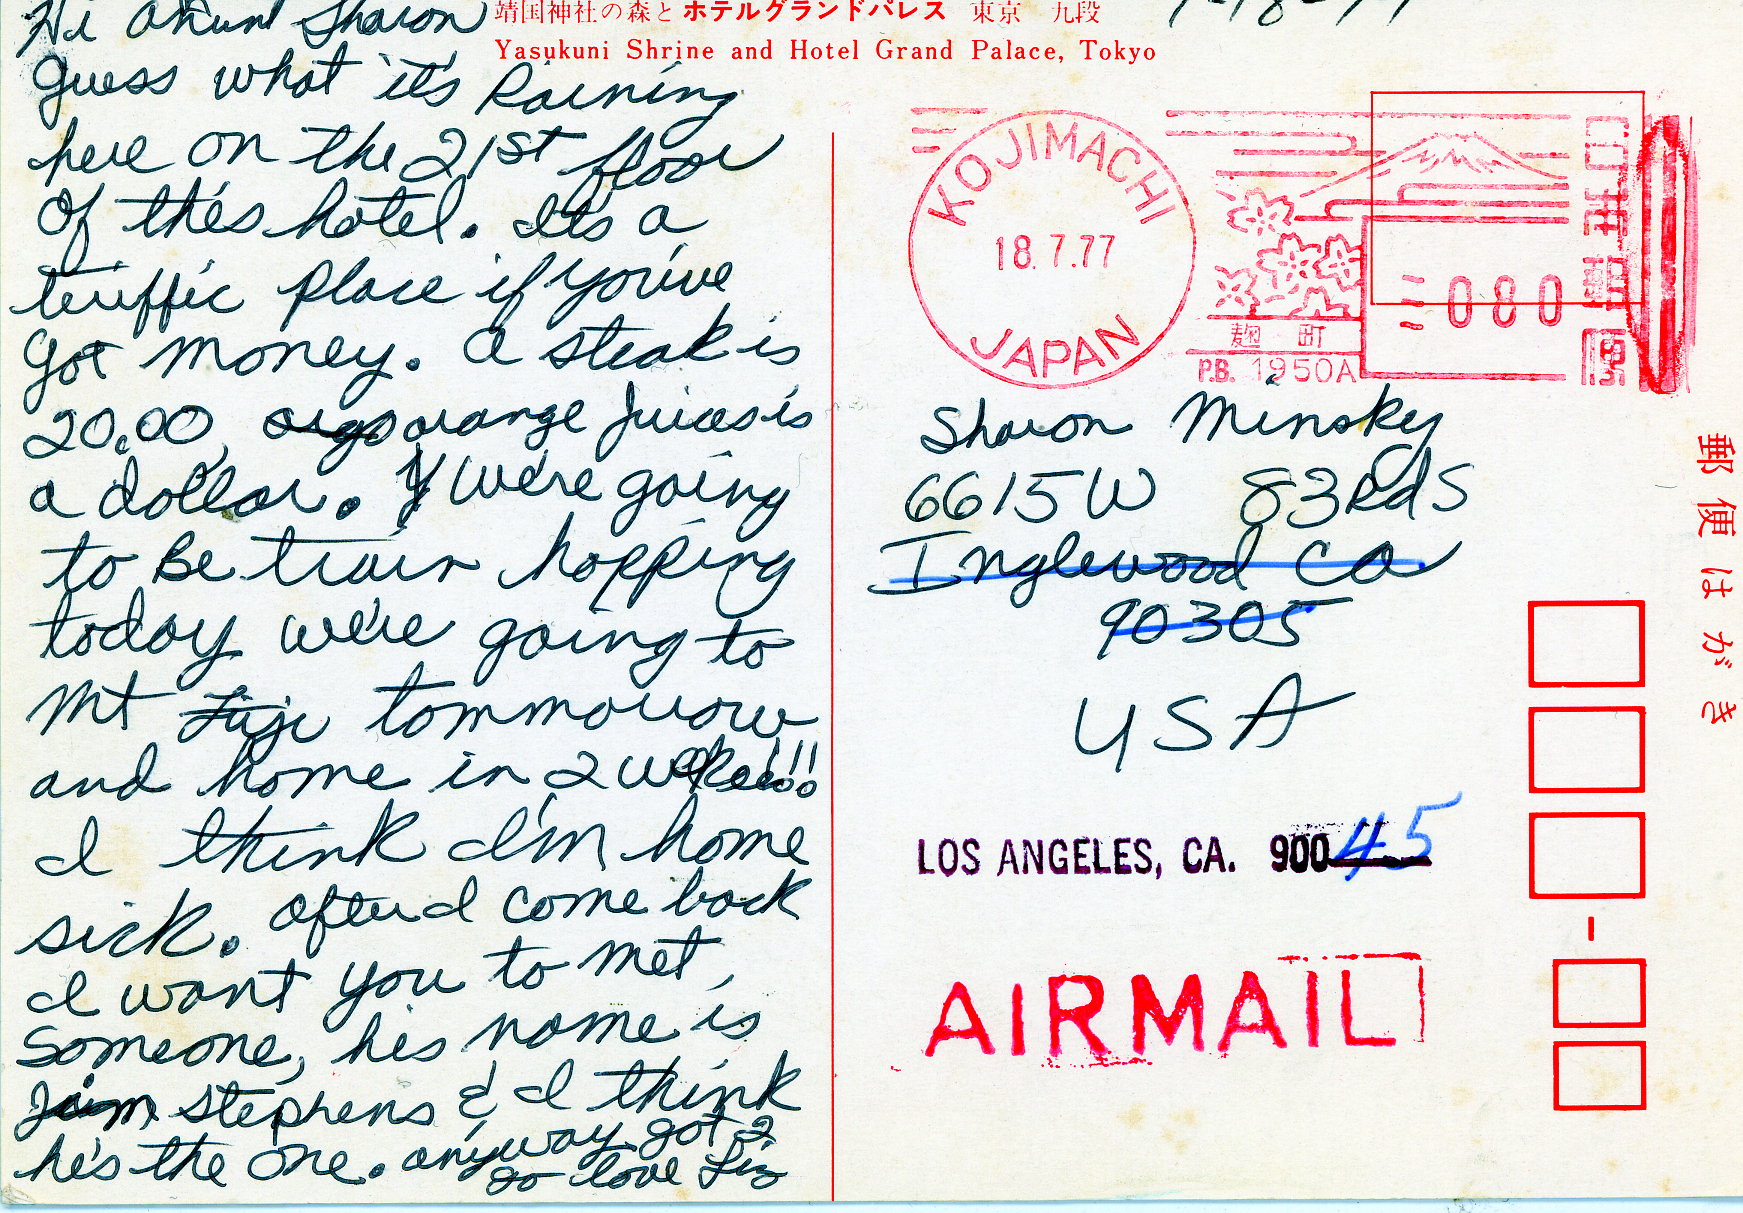 Hi Ahunt Sharon
guess what it's Raining
here on the 21st floor
of this hotel. Its a
teriffic place if you've
got money. A steak is
20.00, orange Juices is
a dollar. We're going
to Be train hopping
today we're going to
Mt Fuji tommorrow
and home in 2 weeks!!!
I think I'm home
sick. After I come back
I want you to met
someone, his name is
Jim Stephens & I think
he's the one. anyway got 2
go love Liz
靖国神社の森とホテルグランドパレス 東京 九段
Yasukuni Shrine and Hotel Grand Palace, Tokyo
7-18-77
KOJIMACHI
18.7.77
JAPAN
麹町
P.B. 1950A
080
日本郵便
Sharon Minsky
6615 W 83Rd S
Inglewood Ca
90305
USA
LOS ANGELES, CA. 90045
AIRMAIL
郵便はがき